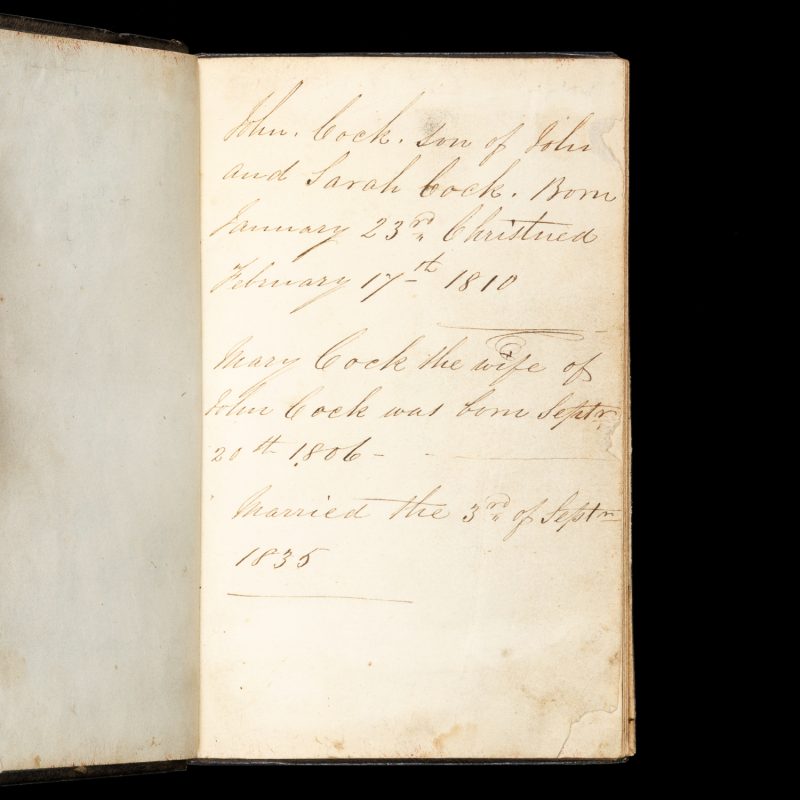 John. Cock. son of John
and Sarah Cock. Born
January 23rd Christned
February 17th 1810
Mary Cock the wife of
John Cock was born Septr
20th 1806 -
Married the 3rd of Septr
1835